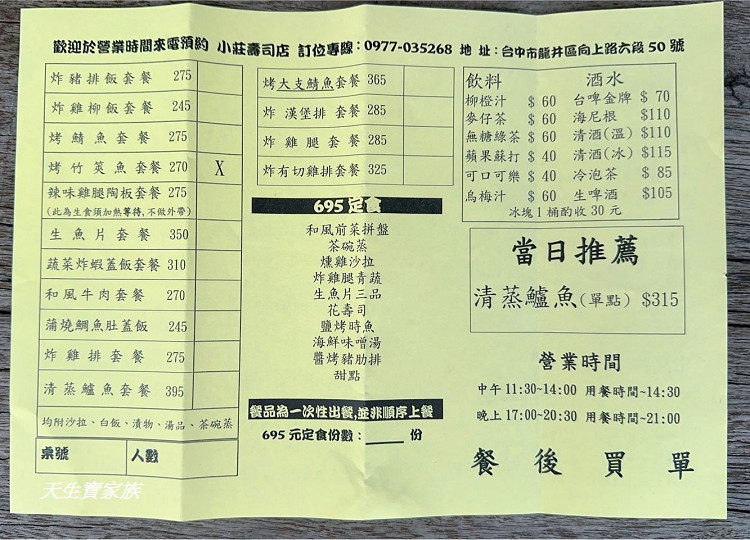 歡迎於營業時間來電預約 小莊壽司店 訂位專線:0977-035268 地 址:台中市龍井區向上路六段 50 號
炸豬排飯套餐 275
炸雞柳飯套餐 245
烤鯖魚套餐 275
烤竹筴魚套餐 270 X
辣味雞腿陶板套餐 275
(此為生食須加熱等待,不做外帶)
生魚片套餐 350
蔬菜炸蝦蓋飯套餐 310
和風牛肉套餐 270
蒲燒鯛魚肚蓋飯 245
炸雞排套餐 275
清蒸鱸魚套餐 395
均附沙拉、白飯、漬物、湯品、茶碗蒸
桌號 人數
天生寶家族
烤大支鯖魚套餐 365
炸漢堡排套餐 285
炸雞腿套餐 285
炸有切雞排套餐 325
695 定食
和風前菜拼盤
茶碗蒸
燻雞沙拉
炸雞腿青蔬
生魚片三品
花壽司
鹽烤時魚
海鮮味噌湯
醬烤豬肋排
甜點
餐品為一次性出餐,並非順序上餐
695 元定食份數:____ 份
飲料 酒水
柳橙汁 $ 60 台啤金牌 $ 70
麥仔茶 $ 60 海尼根 $110
無糖綠茶 $ 60 清酒(溫) $110
蘋果蘇打 $ 40 清酒(冰) $115
可口可樂 $ 40 冷泡茶 $ 85
烏梅汁 $ 60 生啤酒 $105
冰塊 1 桶酌收 30 元
當日推薦
清蒸鱸魚(單點) $315
營業時間
中午 11:30~14:00 用餐時間~14:30
晚上 17:00~20:30 用餐時間~21:00
餐後買單